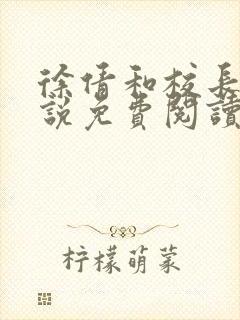 徐倩和校長
說免費閱讀
柠檬萌菜